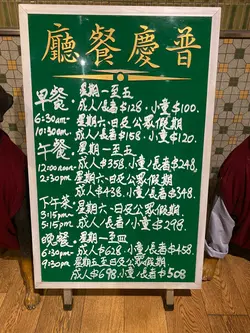 廳餐慶普
早餐 星期一至五
成人/長者$128.小童$100.
6:30am- 星期六.日及公眾假期
10:30am. 成人/長者$158.小童$120.
午餐 星期一至五
12:00noon- 成人$358.小童/長者$248.
2:30pm 星期六.日及公眾假期
成人$438.小童/長者$348.
下午茶. 星期六.日及公眾假期
3:15pm- 成人$328.
5:15pm 小童/長者$298.
晚餐. 星期一至四
6:30pm- 成人$628.小童/長者$458.
9:30pm 星期五至日及公眾假期
成人$698.小童/長者$508